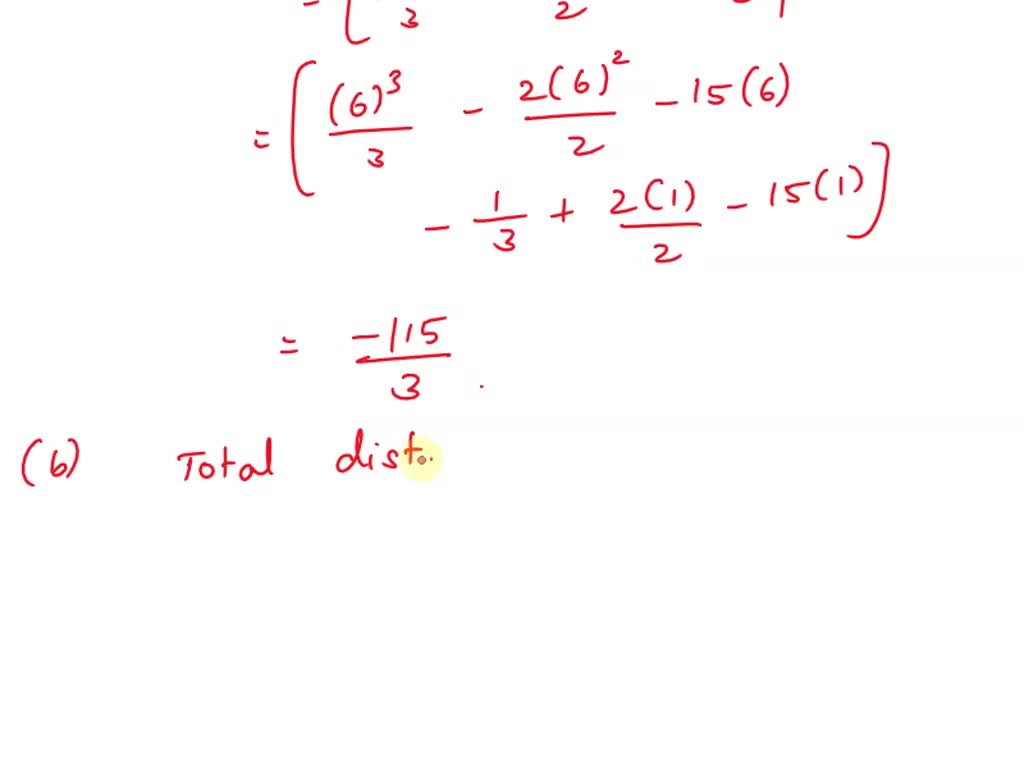 = [ 3 2
= [ (6)³/3 - 2(6)²/2 - 15(6)
- 1/3 + 2(1)/2 - 15(1) ]
= -115/3 .
(b) Total dist.